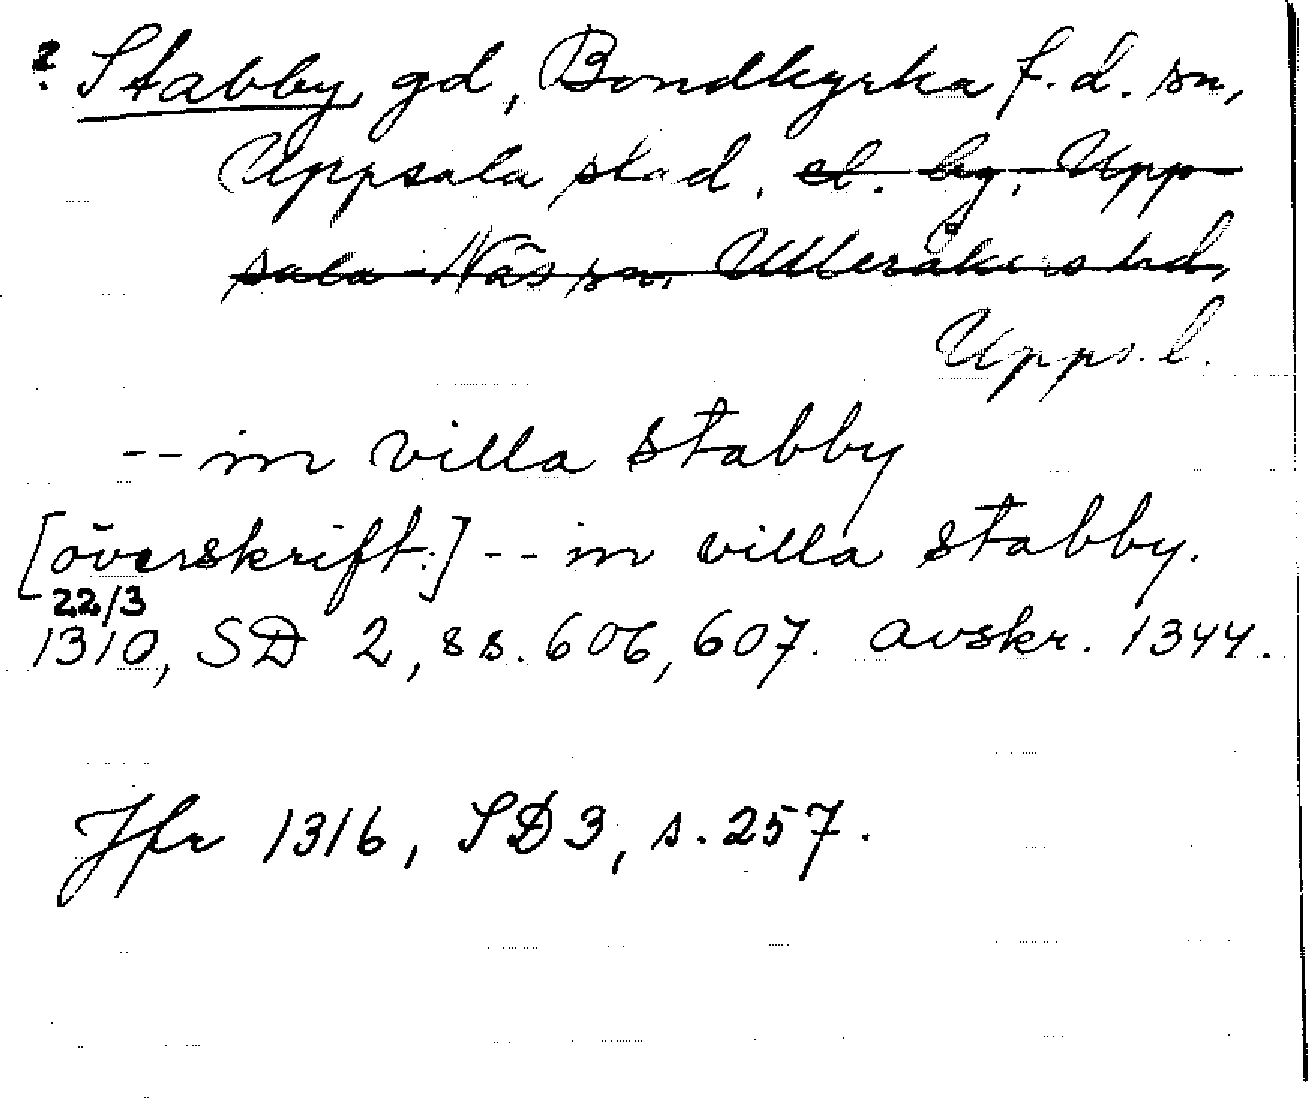 ? Stabby, gd, Bondkyrka f.d. sn,
Uppsala stad. el. by, Upp-
sala-Näs sn, Ulleråkers hd,
Upps. l.
-- in villa stabby
[överskift:] -- in villa stabby.
22/3
1310, SD 2, ss. 606, 607. avskr. 1344.
Jfr 1316, SD 3, s. 257.